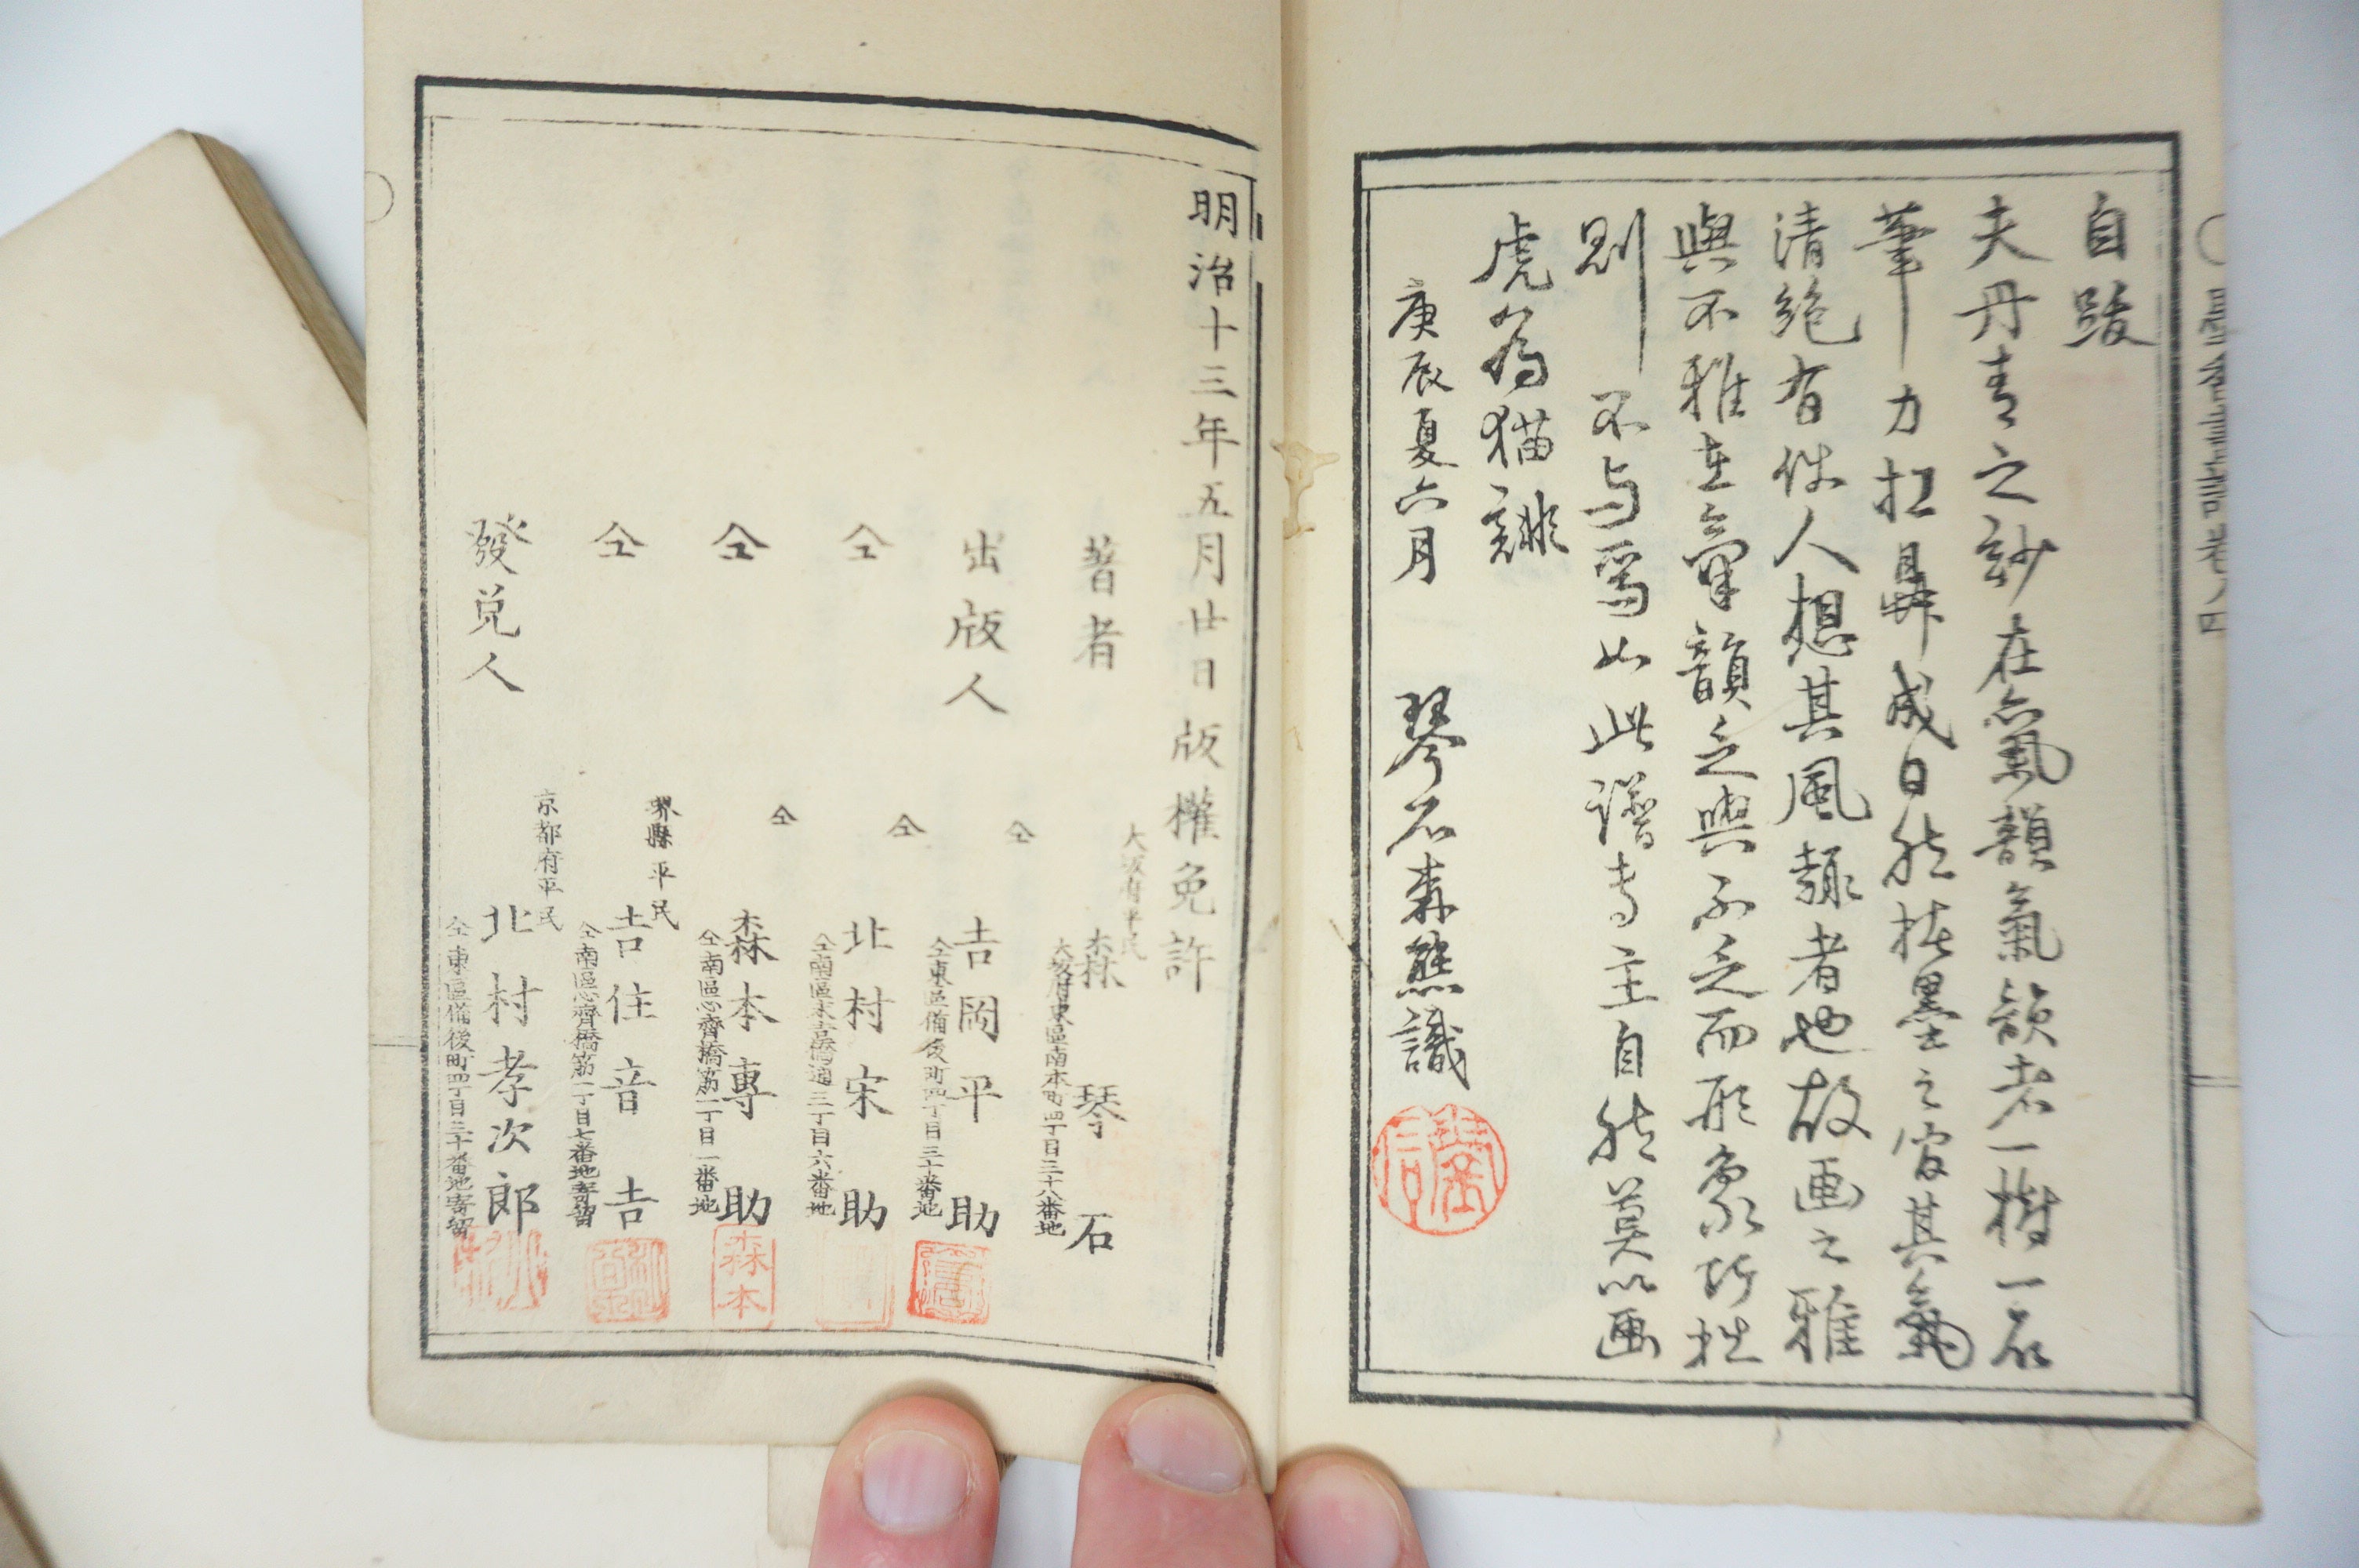 自跋
夫丹青之玅在氣韻氣韻者一樹一石
筆力扛鼎咸曰能積墨之官其氣
清絶有使人想其風韻者也故画之雅
與不雅在氣韻之與不之而形象巧拙
則不与焉如此譜專主自然莫以画
虎為猫誹
庚辰夏六月 琴石森熊識
明治十三年五月廿日版權免許
著者 大坂府平民 森琴石
大坂府東區南本町四丁目三十八番地
出版人 仝 吉岡平助
仝東區備後町四丁目三十番地
仝 仝 北村宋助
仝南區末吉橋通三丁目六番地
仝 仝 森本專助
仝南區心齊橋筋一丁目一番地
森本
仝 堺縣平民 吉住音吉
仝南區心齊橋筋一丁目七番地寄留
發兌人 京都府平民 北村孝次郎
仝東區備後町四丁目三十番地寄留